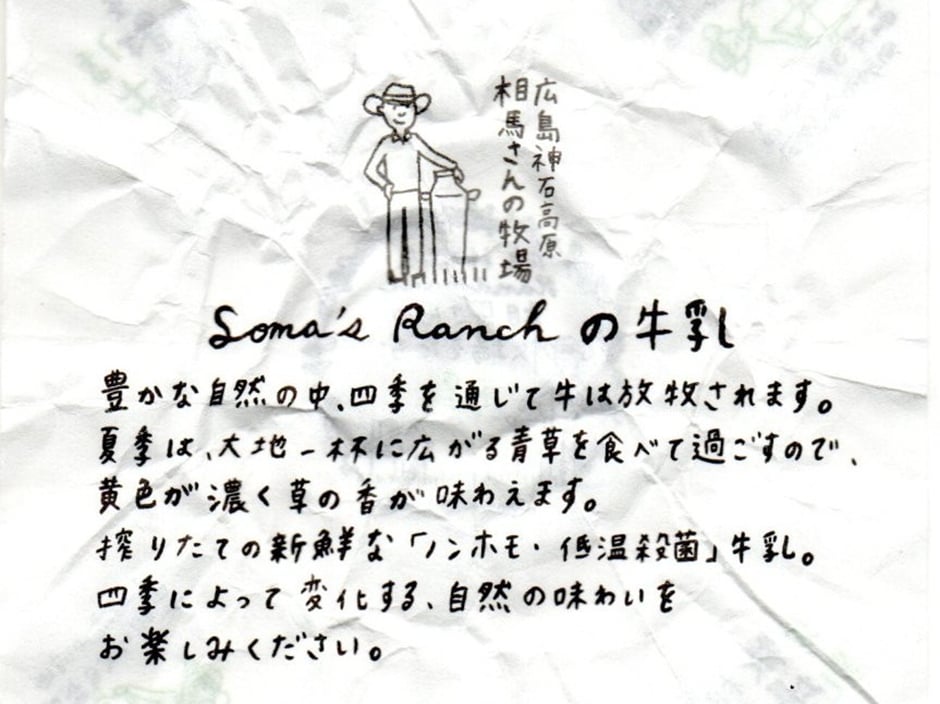 広島神石高原
相馬さんの牧場
Soma's Ranch の牛乳
豊かな自然の中、四季を通じて牛は放牧されます。
夏季は、大地一杯に広がる青草を食べて過ごすので、
黄色が濃く草の香が味わえます。
搾りたての新鮮な「ノンホモ・低温殺菌」牛乳。
四季によって変化する、自然の味わいを
お楽しみください。